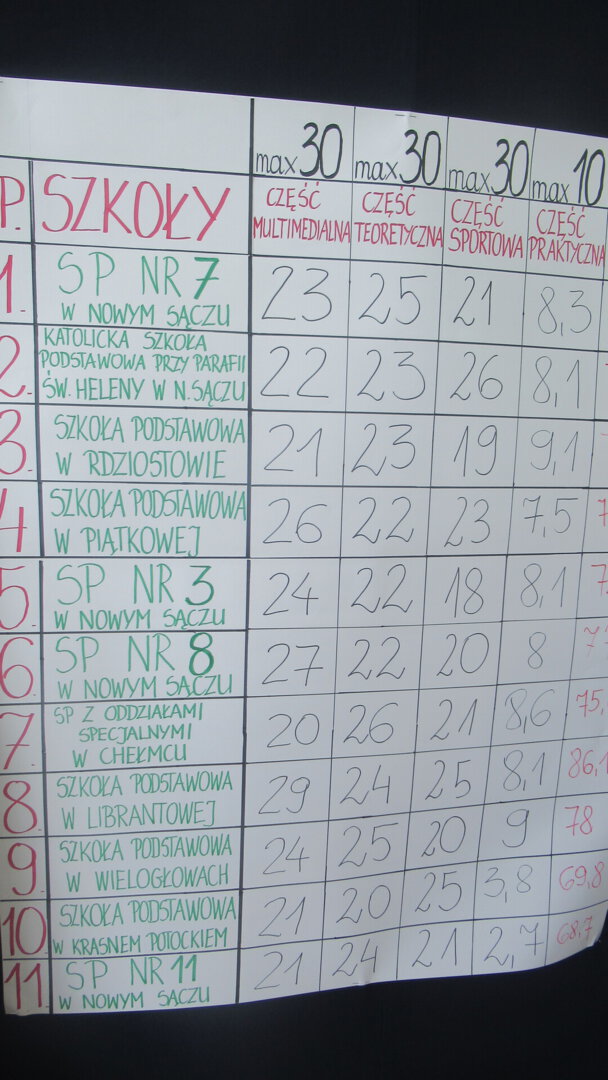 max 30 max 30 max 30 max 10
P. SZKOŁY CZĘŚĆ MULTIMEDIALNA CZĘŚĆ TEORETYCZNA CZĘŚĆ SPORTOWA CZĘŚĆ PRAKTYCZNA
1. SP NR 7
W NOWYM SĄCZU 23 25 21 8,3
2. KATOLICKA SZKOŁA
PODSTAWOWA PRZY PARAFII
ŚW. HELENY W N. SĄCZU 22 23 26 8,1
3. SZKOŁA PODSTAWOWA
W RDZIOSTOWIE 21 23 19 9,1
4 SZKOŁA PODSTAWOWA
W PIĄTKOWEJ 26 22 23 7,5
5. SP NR 3
W NOWYM SĄCZU 24 22 18 8,1
6. SP NR 8
W NOWYM SĄCZU 27 22 20 8
7. SP Z ODDZIAŁAMI
SPECJALNYMI
W CHEŁMCU 20 26 21 8,6 75,
8. SZKOŁA PODSTAWOWA
W LIBRANTOWEJ 29 24 25 8,1 86,1
9. SZKOŁA PODSTAWOWA
W WIELOGŁOWACH 24 25 20 9 78
10. SZKOŁA PODSTAWOWA
W KRASNEM POTOCKIEM 21 20 25 3,8 69,8
11. SP NR 11
W NOWYM SĄCZU 21 24 21 2,7 68,7